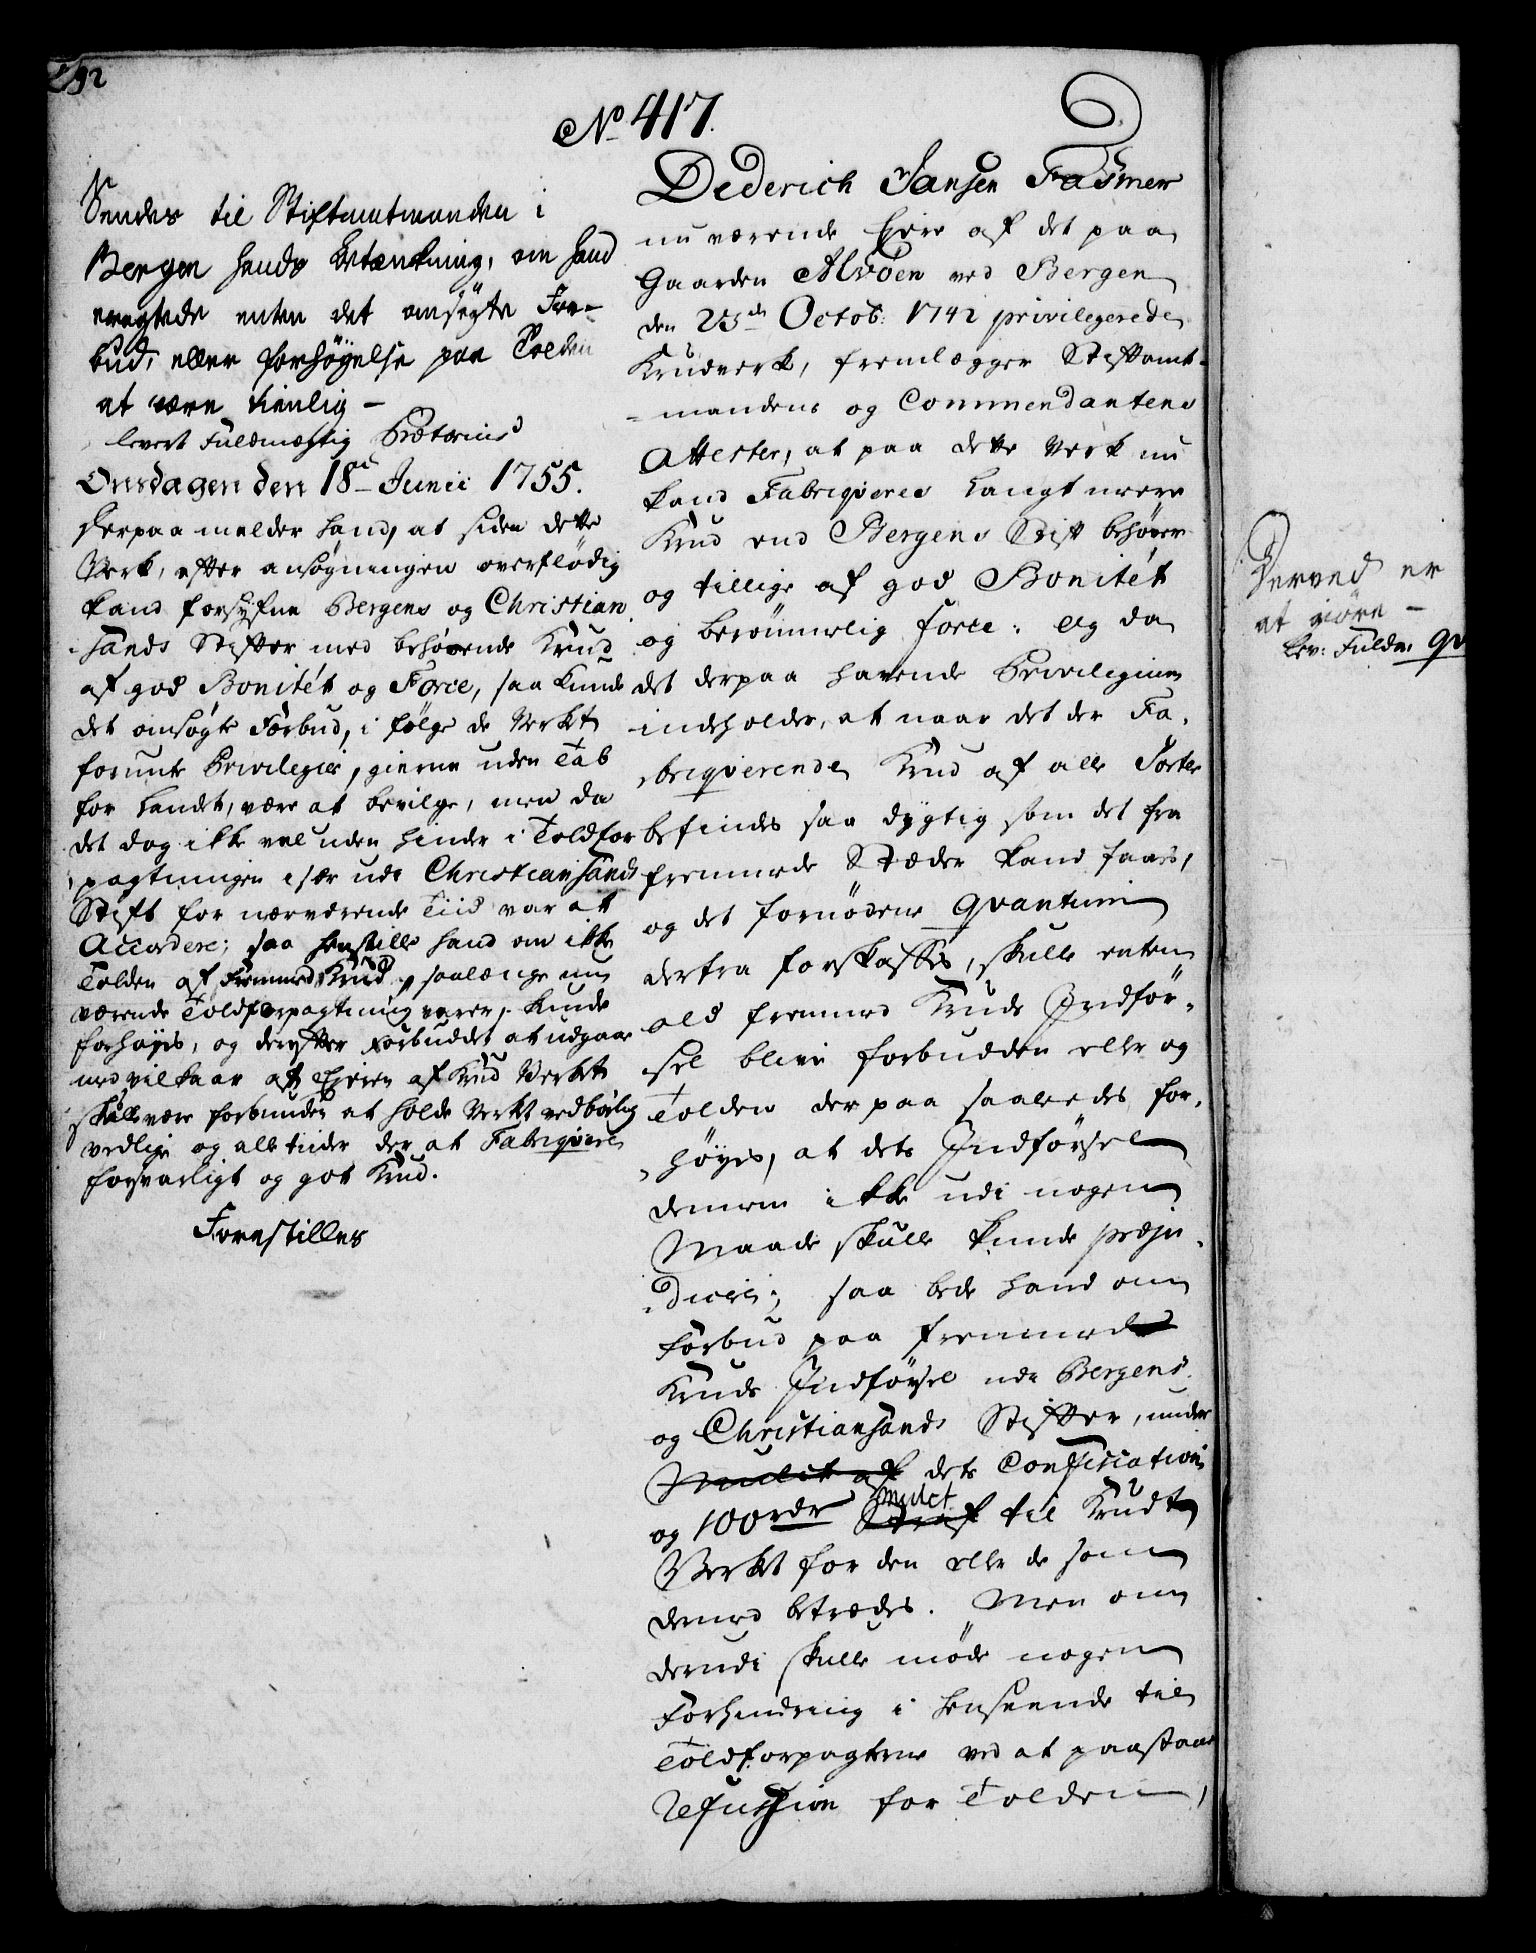 292
No 417.
Sendes til Stiftamtmanden i
Bergen hands betænkning, om hand
eragtede enten det ansøgte For-
bud, eller forhøyelse paa Tolden
at være tienlig -
levert Fuldmægtig Prætorius
Onsdagen den 18de Junii 1755.
Herpaa melder hand, at siden dette
Verk, efter ansøgningen overflødig
kand forsyne Bergens og Christian
sands Stifter med behøvende Krud
af god Bonitét og Force, saa kunde
det ansøgte Forbud, i følge de Verket
forundte Privilegier, gierne uden Tab
for Landet, være at bevilge, men da
det dog ikke vel uden hinder i Toldfor
pagtningen især udi Christiansands
Stift for nærværende Tiid var at
Accordere; saa henstiller hand om ikke
Tolden af Fremmed Krud, saalænge nu
værende Toldforpagtning varer, kunde
forhøyes, og derefter Forbuddet at udgaae
med vilkaar at Eieren af Krud Verket
skulle være forbunden at holde Verket ved børlig
vedlige og alle tiider der at Fabriqvere
forsvarligt og got Krud.
Forestilles
Dederich Jansen Fasmer
nu værende Eiere af det paa
Gaarden Alvöen ved Bergen
den 23de Octob: 1742 privilegerede
Krudverk, fremlægger Stiftamt-
mandens og Commendantens
Attester, at paa dette Verk nu
kand Fabriqveres langt meere
Krud end Bergens Stift behøver
og tillige af god Bonitét
og berömmelig force: Og da
det derpaa havende Privilegium
indeholder, at naar det der Fa-
briqverende Krud af alle Sorter
befindes saa dygtig som det fra
fremmede Stæder kand faaes,
og det fornødene Qvantum
derfra forskaffes, skulle enten
ald fremmed Kruds Indför-
sel blive forbudden eller og
Tolden derpaa saaledes for-
höyes, at dets Indförsel
demem ikke udi nogen
Maade skulle kunde præju-
dicere; saa beder hand om
Forbud paa fremmed
Kruds Indförsel udi Bergens
og Christiansands Stifter, under
Mulct af dets Confiscation
og 100 rdr Straf mulct til Krudt
Verket for den eller de som
dermed betrædes. Men om
derudi skulle möde nogen
Forhindring i henseende til
Toldforpagterne ved at paastaae
Refussion for Tolden,
Derved er
at giøre -
Lev: Fuldm. Qv